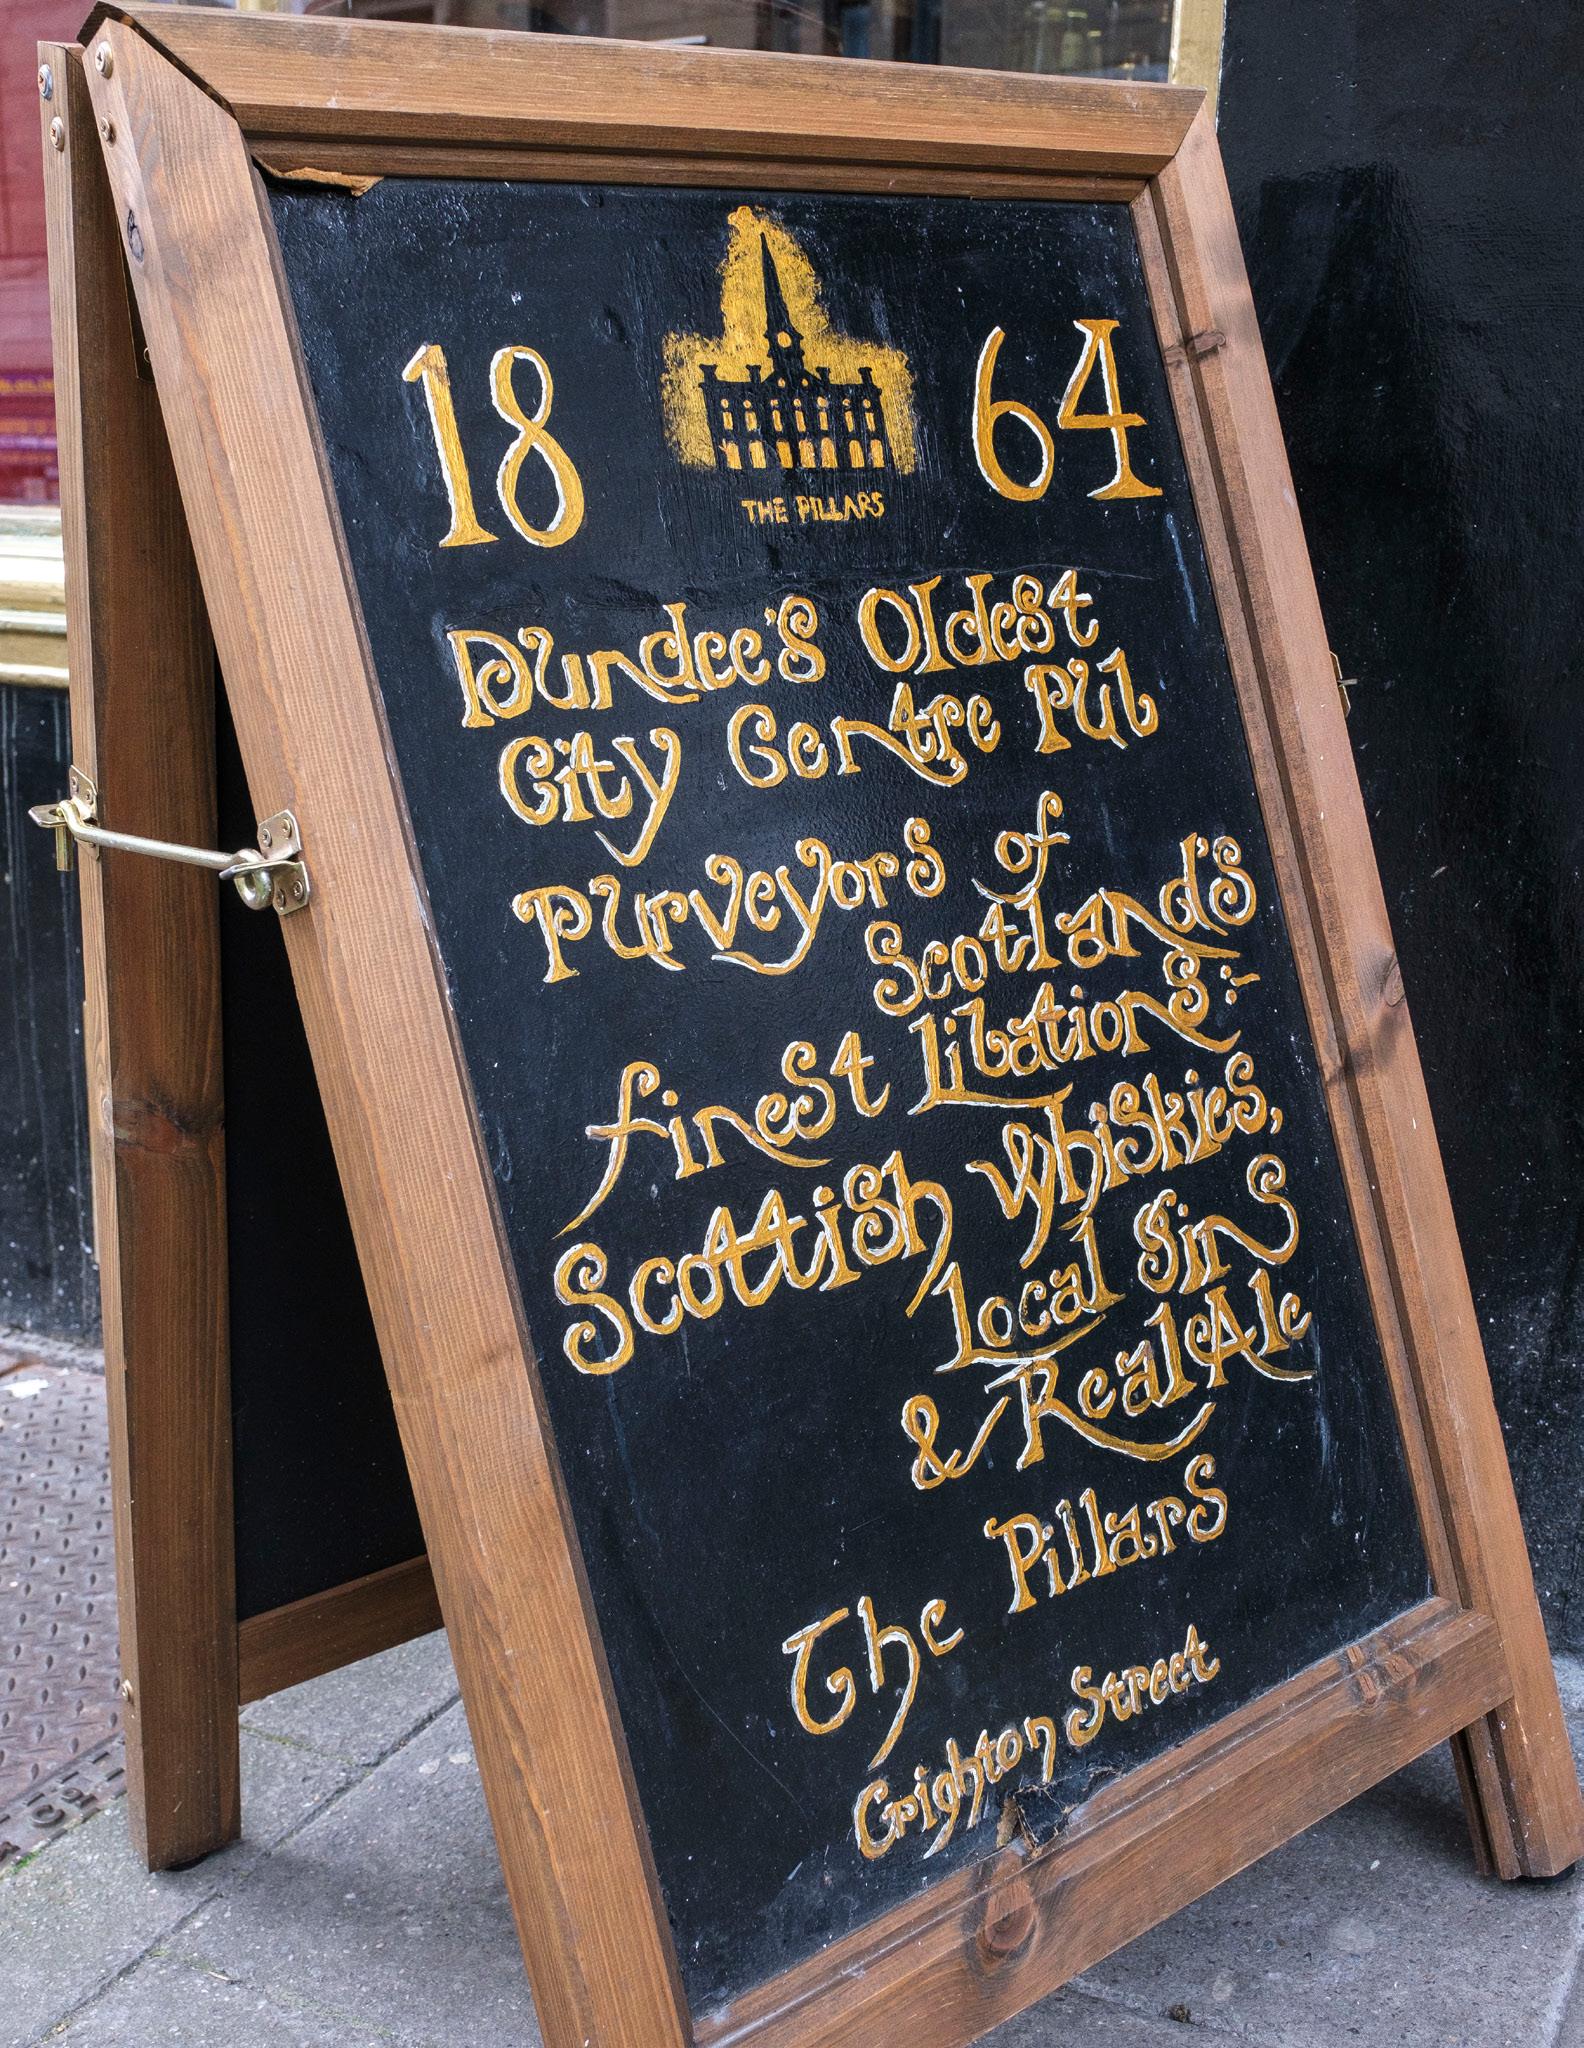 18 64
THE PILLARS
Dundee's Oldest
City Centre Pub
Purveyors of
Scotland's
finest Libations:-
Scottish Whiskies,
Local Gins
& Real Ale
The Pillars
Crighton Street